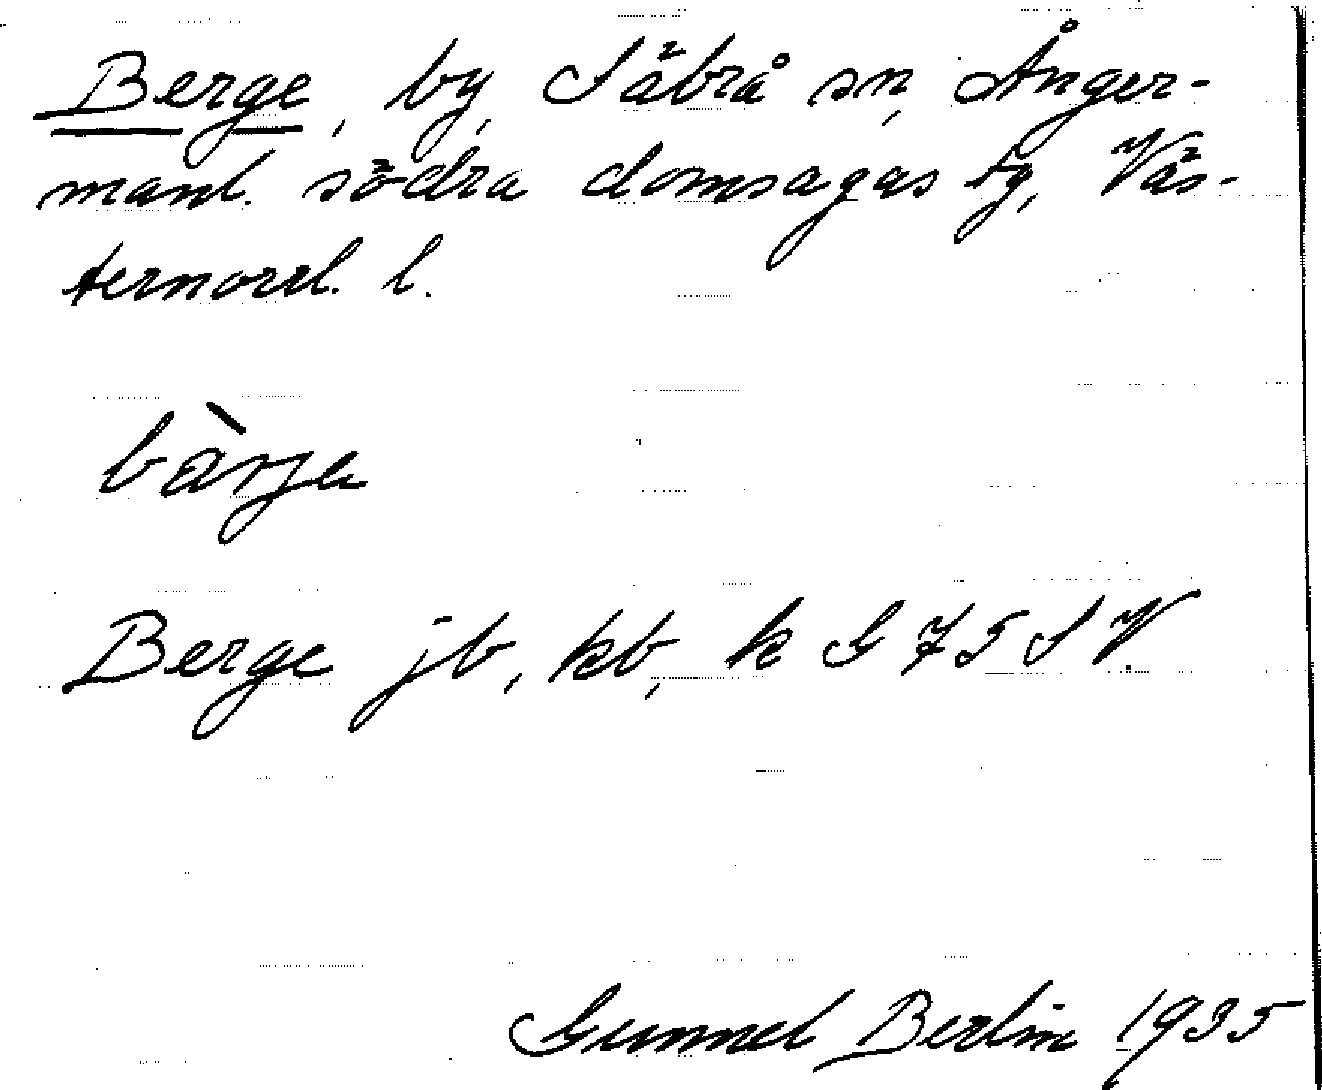 Berge, by, Säbrå sn, Ånger-
manl. södra domsagas tg, Väs-
ternorrl. l.
bàrja
Berge jb, kb, k G 75 S V
Gunnel Berlin 1935